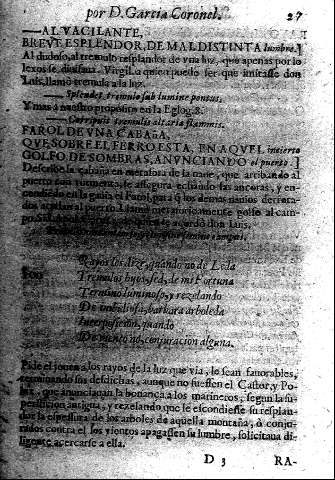 por D. Garcia Coronel. 27
—AL VACILANTE,
BREVE ESPLENDOR, DE MAL DISTINTA lumbre.]
Al dudoso, al tremulo resplandor de vna luz, que apenas por lo
lexos se diuisaua. Virgilio quien puede ser que imitasse don
Luis, llamò tremula a la luz.
—Splendet tremulo sub lumine pontus.
Y mas à nuestro proposito en la Eglog. 8.
—Corripuit tremulis altaria flammis.
FAROL DE VNA CABAÑA,
QVE SOBRE EL FERRO ESTA, EN AQVEL incierto
GOLFO DE SOMBRAS, ANVNCIANDO el puerto.]
Descriue la cabaña en metafora de la naue, que arribando al
puerto con tormenta, se assegura echando las ancoras, y en-
cendiendo en la gauia el Farol, para que los demas nauios derrota-
dos acudan al puerto. Llamò metaforicamente golfo al cam-
po
Rayos les dize, ya que no de Leda
Tremulos hijos, sed de mi Fortuna
Termino luminoso, y rezelando
De inuidiosa, barbara arboleda
Interposicion, quando
De vientos no, conjuracion alguna.
Pide el jouen a los rayos de la luz que via, le sean fauorables,
terminando sus desdichas, aunque no fuessen el Castor, y Po-
lux, que anunciauan la bonança a los marineros, segun la su-
persticion antigua, y rezelando que le escondiesse su resplan-
dor la espessura de los arboles de aquella montaña, ò conju-
rados contra el los vientos apagassen su lumbre, solicitaua di-
ligente acercarse a ella.
D 3 RA-